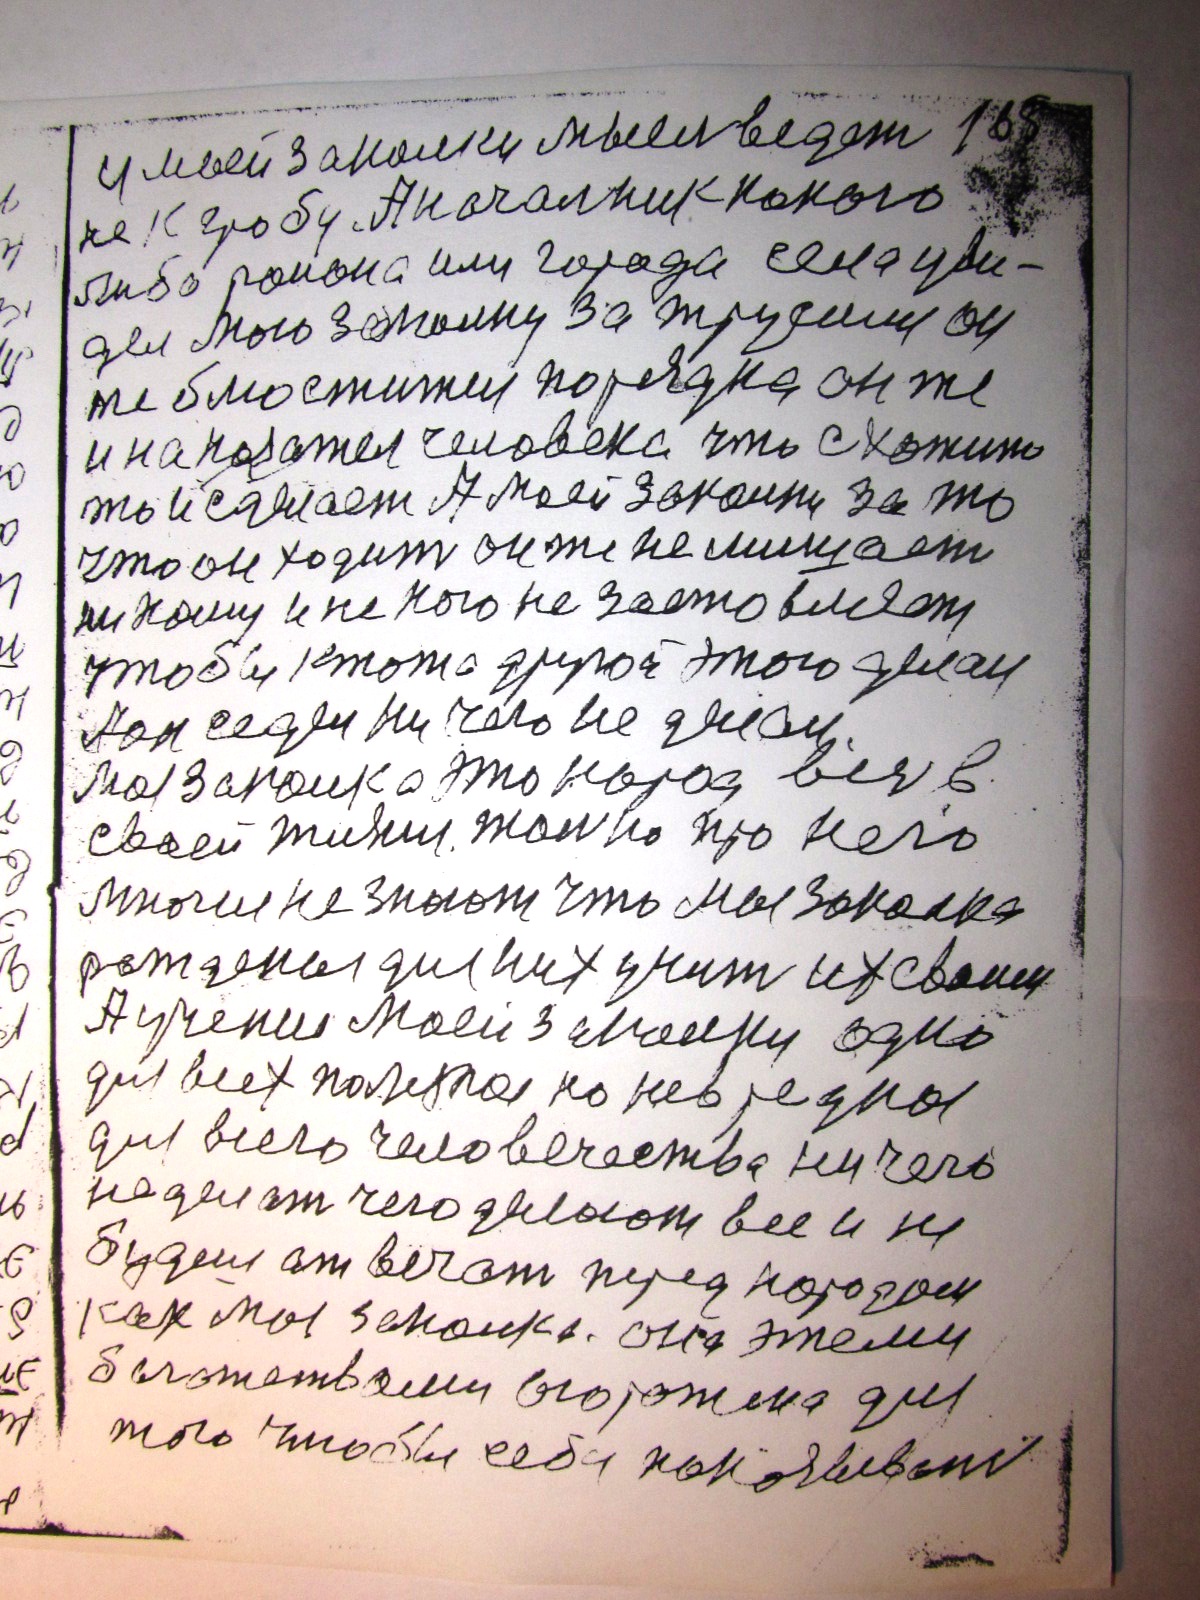 168
у моей закалки мысл ведет
не к гробу. А началник какого
либо раиона или города села уви-
дел мою закалку за трусили он
же блюстижел порядка он же
и наказател человека что схотит
то и сделает А моей закалки за то
что он ходит он же не мишает
никому и не кого не заставляет
чтобы ктота другой этого делал
А он седел ни чего не делал.
Моя закалка это народ веря в
своей жизни. толко про него
многия не знают что моя закалка
рождения для них учит их своим
А учения моей закалки одно
для всех полезная но не вредная
для всего человечества ни чего
не делат чего делают все и не
будеш отвечат перед народом
как моя закалка. она этеми
багатствами огорожена для
того чтобы себя показыват